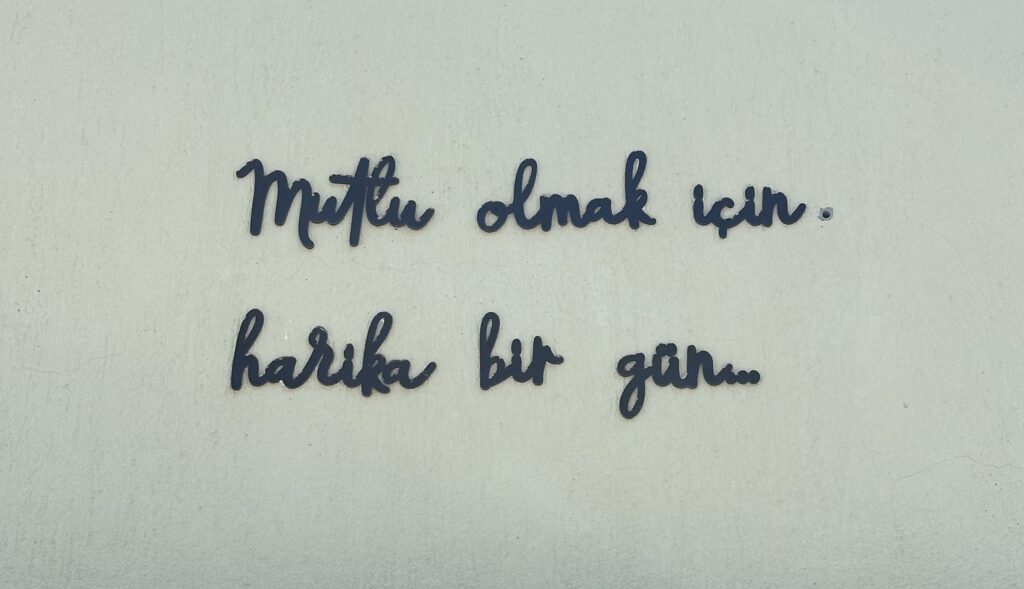 Mutlu olmak için.
harika bir gün...